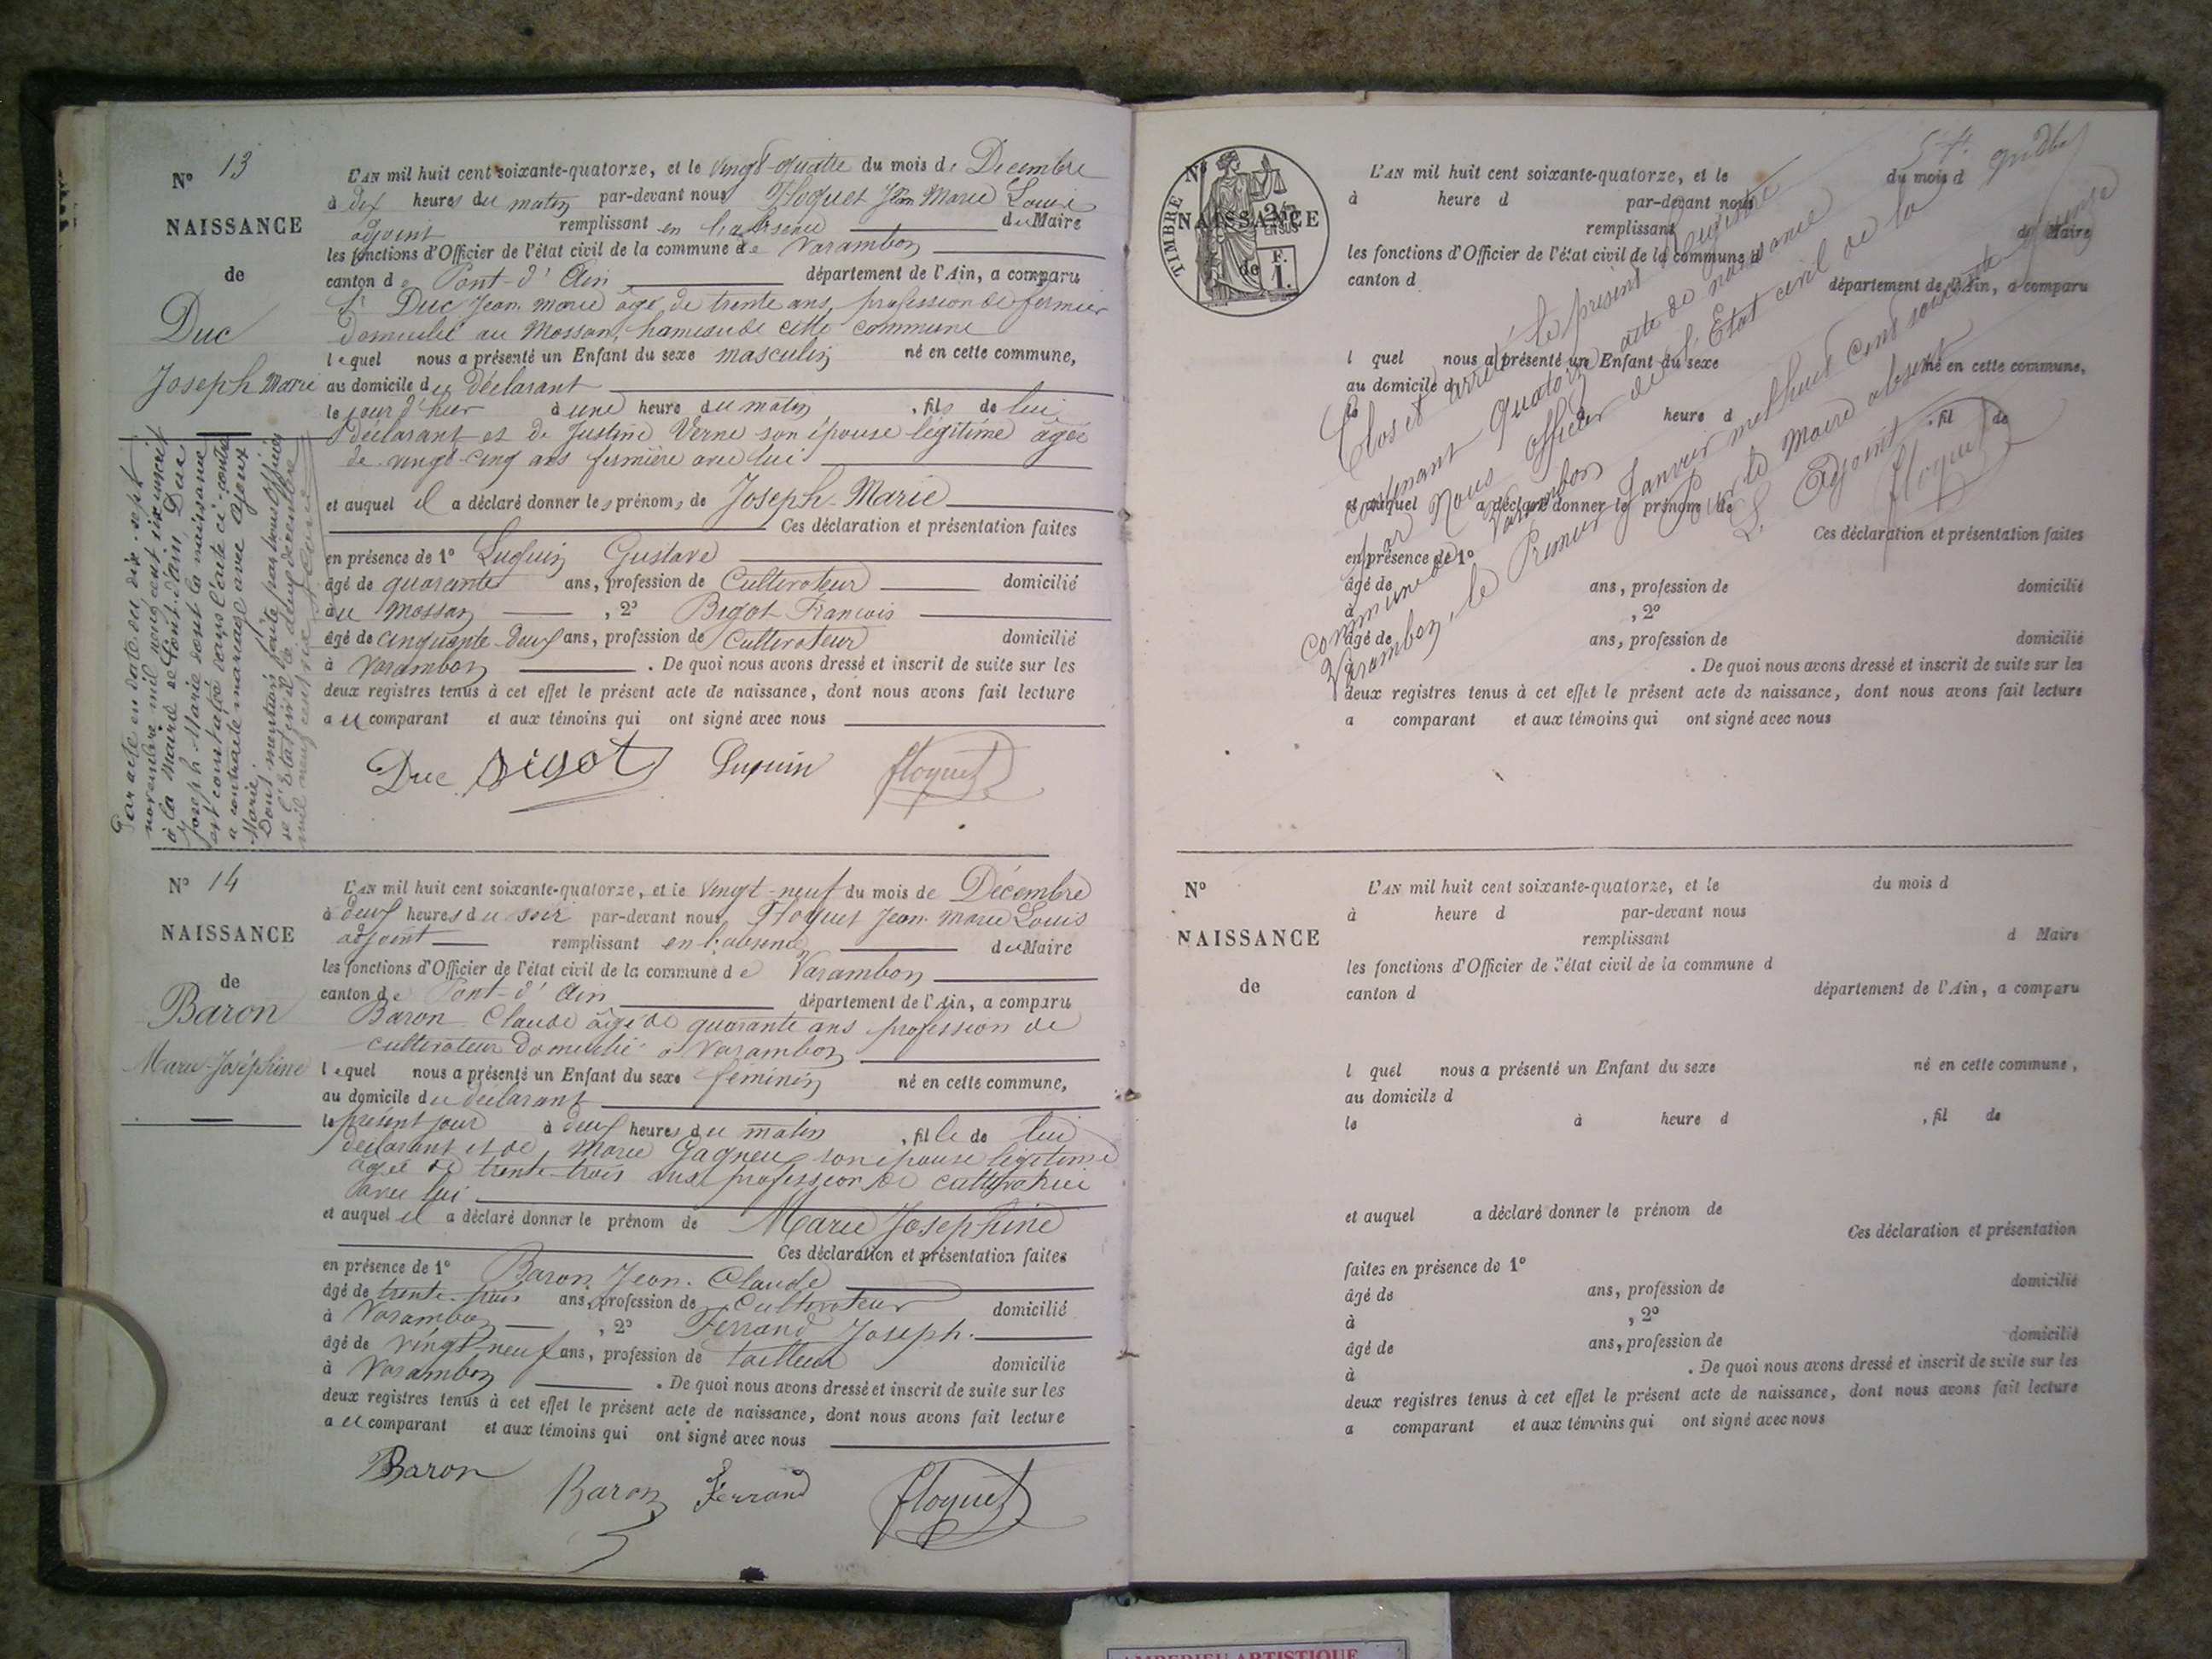 N° 13
NAISSANCE
de
Duc
Joseph Marie
L'AN mil huit cent soixante-quatorze, et le vingt-quatre du mois de Decembre
à dix heures du matin par-devant nous Floquet Jean Marie Louis
adjoint remplissant en du Maire
les fonctions d'Officier de l'état civil de la commune de Varambon
canton de Pont-d'Ain département de l'Ain, a comparu
Sr Duc Jean Marie âgé de trente ans, profession de fermier
domicilié au Mossan, hameau de cette commune
lequel nous a présenté un Enfant du sexe masculin né en cette commune,
au domicile du déclarant
le jour d'hier à une heure du matin, fils de lui
déclarant et de Justine Verne son épouse légitime âgée
de vingt-cinq ans fermière avec lui
et auquel il a déclaré donner les prénoms de Joseph-Marie
Ces déclaration et présentation faites
en présence de 1° Luquin Gustave
âgé de quarante ans, profession de Cultivateur domicilié
au Mossan, 2° Bigot Francois
âgé de cinquante-deux ans, profession de Cultivateur domicilié
à Varambon. De quoi nous avons dressé et inscrit de suite sur les
deux registres tenus à cet effet le présent acte de naissance, dont nous avons fait lecture
au comparant et aux témoins qui ont signé avec nous
Duc Bigot Luquin Floquet
Par acte en date du dix-sept
novembre mil neuf cent six inscrit
à la Mairie de Pont-d'Ain, Duc
Joseph Marie dont la naissance
est constatée dans l'acte ci-contre
a contracté mariage avec Ajoux
Marie.
Dont mention faite par nous officier
de l'Etat civil le deux décembre
mil neuf cent
N° 14
NAISSANCE
de
Baron
Marie-Joséphine
L'AN mil huit cent soixante-quatorze, et le vingt-neuf du mois de Décembre
à deux heures du soir par-devant nous Floquet Jean Marie Louis
adjoint remplissant en l'absence du Maire
les fonctions d'Officier de l'état civil de la commune de Varambon
canton de Pont-d'Ain département de l'Ain, a comparu
Baron Claude âgé de quarante ans profession de
cultivateur domicilié à Varambon
lequel nous a présenté un Enfant du sexe féminin né en cette commune,
au domicile du déclarant
le présent jour à deux heures du matin, fille de lui
déclarant et de Marie Gagneux son épouse légitime
âgée de trente-trois ans profession de cultivatrice
avec lui
et auquel il a déclaré donner le prénom de Marie Joséphine
Ces déclaration et présentation faites
en présence de 1° Baron Jean-Claude
âgé de trente ans, profession de Cultivateur domicilié
à Varambon, 2° Ferrand Joseph.
âgé de vingt-neuf ans, profession de tailleur domicilié
à Varambon. De quoi nous avons dressé et inscrit de suite sur les
deux registres tenus à cet effet le présent acte de naissance, dont nous avons fait lecture
au comparant et aux témoins qui ont signé avec nous
Baron Baron Ferrand Floquet
N°
TIMBRE
NAISSANCE
de
F.
1.
L'AN mil huit cent soixante-quatorze, et le du mois d
à heure d par-devant nous
remplissant du Maire
les fonctions d'Officier de l'état civil de la commune d
canton d département de l'Ain, a comparu
l quel nous a présenté un Enfant du sexe né en cette commune,
au domicile d
le à heure d , fil de
et auquel a déclaré donner le prénom de
Ces déclaration et présentation faites
en présence de 1°
âgé de ans, profession de domicilié
à , 2°
âgé de ans, profession de domicilié
à . De quoi nous avons dressé et inscrit de suite sur les
deux registres tenus à cet effet le présent acte de naissance, dont nous avons fait lecture
a comparant et aux témoins qui ont signé avec nous
Clos et arrêté le présent Registre
contenant quatorze acte de naissance
par Nous officier de l'Etat civil de la
commune de Varambon
Varambon, le Premier Janvier mil huit cent soixante quinze
Pour le Maire absent
L'Adjoint
Floquet
N°
NAISSANCE
de
L'AN mil huit cent soixante-quatorze, et le du mois d
à heure d par-devant nous
remplissant d Maire
les fonctions d'Officier de l'état civil de la commune d
canton d département de l'Ain, a comparu
l quel nous a présenté un Enfant du sexe né en cette commune,
au domicile d
le à heure d , fil de
et auquel a déclaré donner le prénom de
Ces déclaration et présentation
faites en présence de 1°
âgé de ans, profession de domicilié
à , 2°
âgé de ans, profession de domicilié
à . De quoi nous avons dressé et inscrit de suite sur les
deux registres tenus à cet effet le présent acte de naissance, dont nous avons fait lecture
a comparant et aux témoins qui ont signé avec nous
AMBERIEU ARTISTIQUE